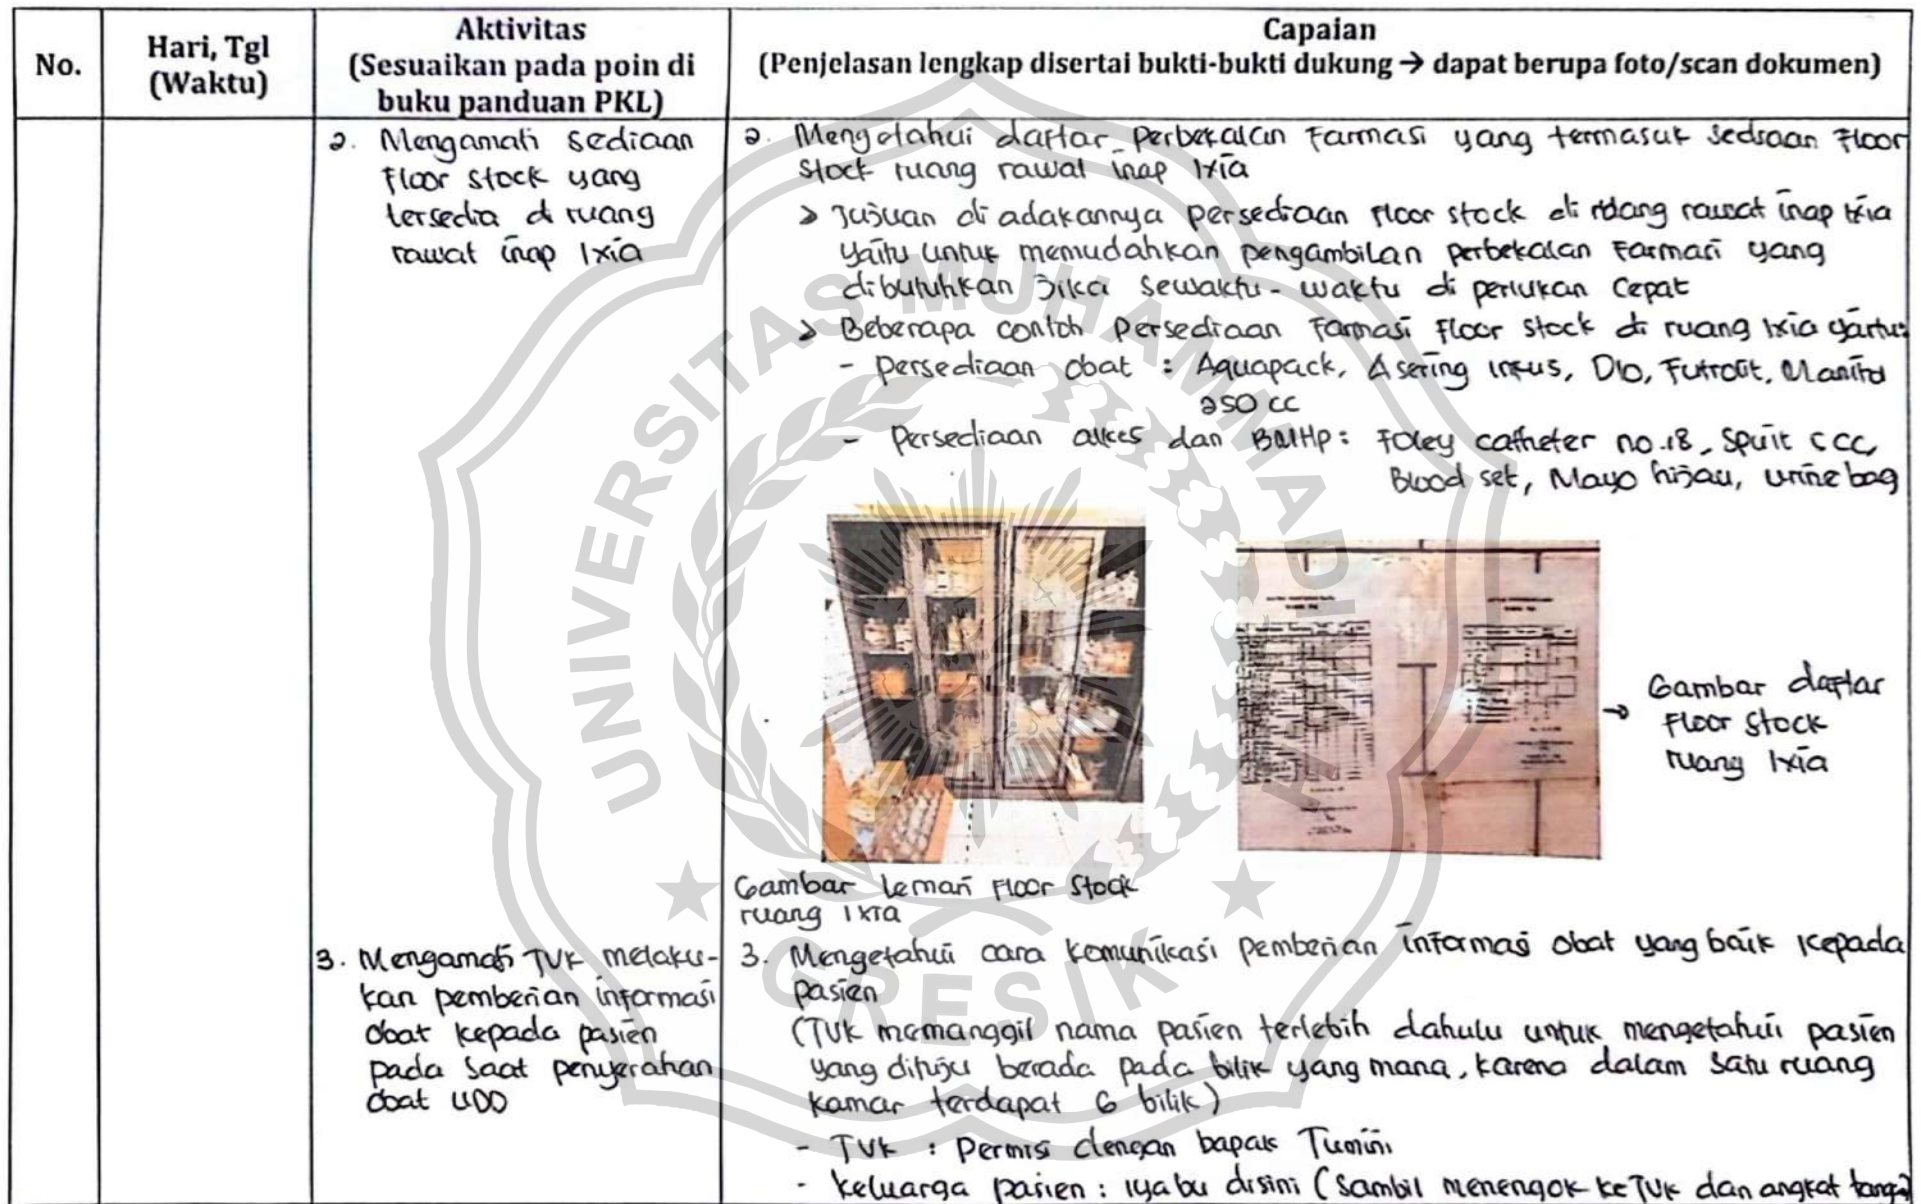 No.
Hari, Tgl
(Waktu)
Aktivitas
(Sesuaikan pada poin di
buku panduan PKL)
Capaian
(Penjelasan lengkap disertai bukti-bukti dukung → dapat berupa foto/scan dokumen)
2. Mengamati sediaan
floor stock yang
tersedia di ruang
rawat inap Ixia
2. Mengetahui daftar perbekalan Farmasi yang termasuk sediaan Floor
Stock ruang rawat inap Ixia
> Tujuan di adakannya persediaan floor stock di ruang rawat inap Ixia
yaitu untuk memudahkan pengambilan perbekalan Farmasi yang
dibutuhkan jika sewaktu-waktu di perlukan cepat
> Beberapa contoh persediaan Farmasi floor stock di ruang Ixia yaitu:
- Persediaan obat : Aquapack, Asering infus, D10, Futrolit, Manitol
250 cc
- Persediaan alkes dan BMHP: Foley catheter no.18, Spuit
Blood set, Mayo hijau, urine bag
Gambar lemari Floor Stock
ruang Ixia
→ Gambar daftar
Floor Stock
ruang Ixia
3. Mengamati TVK melaku-
kan pemberian informasi
obat kepada pasien
pada saat penyerahan
obat UDD
3. Mengetahui cara komunikasi pemberian informasi obat yang baik kepada
pasien
(TVK memanggil nama pasien terlebih dahulu untuk mengetahui pasien
yang dituju berada pada bilik yang mana, karena dalam satu ruang
kamar terdapat 6 bilik)
- TVK : Permisi dengan bapak Tumini
- keluarga pasien : iya bu disini (sambil menengok ke TVK dan angkat tangan)
UNIVERSITAS MUHAMMADIYAH
GRESIK